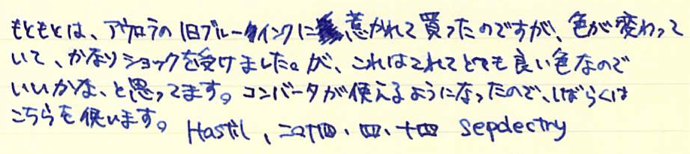 もともとは、アウロラの旧ブルーインクに惹かれて買ったのですが、色が変わって
いて、かなりショックを受けました。が、これはこれでとても良い色なので
いいかな、と思ってます。コンバータが使えるようになったので、しばらくは
こちらを使います。 Hastil、二〇十四・四・十四 Sepdectry